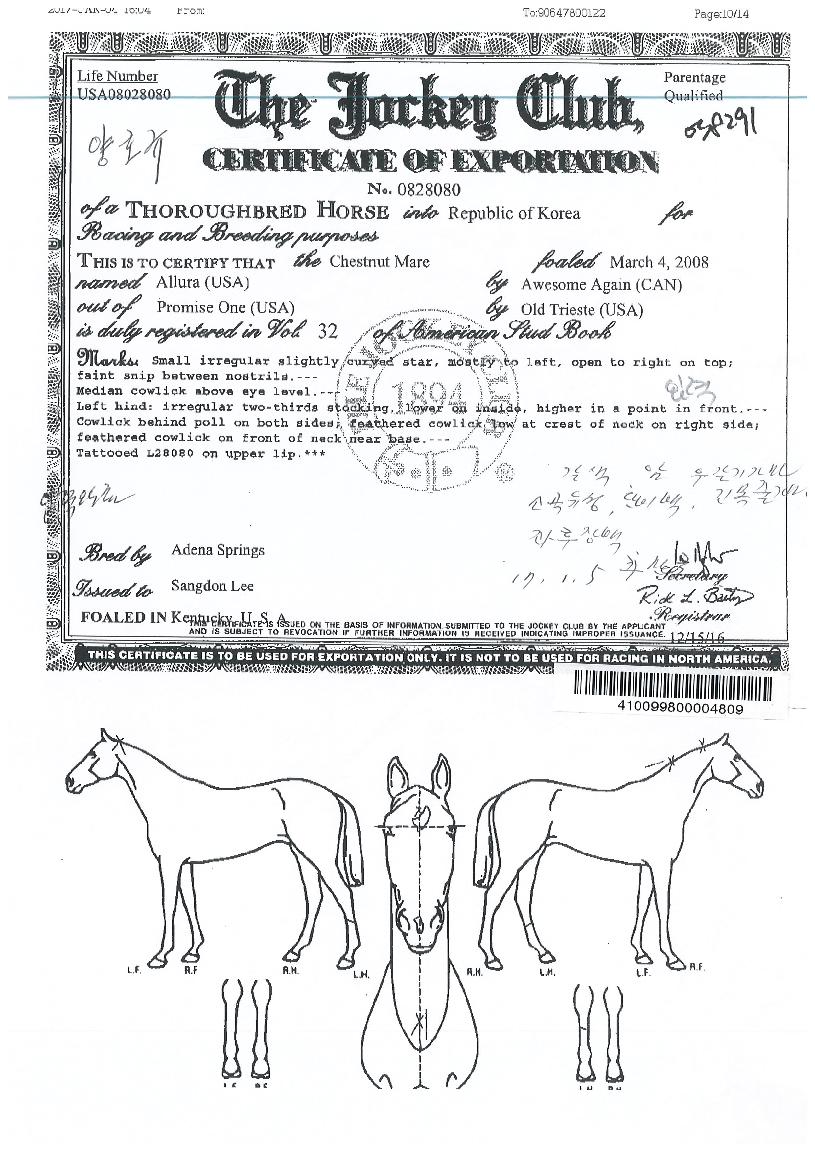 2017-JAN-04 16:04 From: To:90647800122 Page:10/14
Life Number
USA08028080
Parentage
Qualified
The Jockey Club,
038291
CERTIFICATE OF EXPORTATION
No. 0828080
of a THOROUGHBRED HORSE into Republic of Korea for
Racing and Breeding purposes
THIS IS TO CERTIFY THAT the Chestnut Mare foaled March 4, 2008
named Allura (USA) by Awesome Again (CAN)
out of Promise One (USA) by Old Trieste (USA)
is duly registered in Vol. 32 of American Stud Book
Marks: Small irregular slightly curved star, mostly to left, open to right on top;
faint snip between nostrils.---
Median cowlick above eye level.---
Left hind: irregular two-thirds stocking, lower on inside, higher in a point in front.---
Cowlick behind poll on both sides; feathered cowlick low at crest of neck on right side;
feathered cowlick on front of neck near base.---
Tattooed L28080 on upper lip.***
THE JOCKEY CLUB
1894
Bred by Adena Springs
17. 1. 5
Secretary
Issued to Sangdon Lee
Rick L. Bailey
Registrar
FOALED IN Kentucky, U.S.A.
THIS CERTIFICATE IS ISSUED ON THE BASIS OF INFORMATION SUBMITTED TO THE JOCKEY CLUB BY THE APPLICANT
AND IS SUBJECT TO REVOCATION IF FURTHER INFORMATION IS RECEIVED INDICATING IMPROPER ISSUANCE.
12/15/16
THIS CERTIFICATE IS TO BE USED FOR EXPORTATION ONLY. IT IS NOT TO BE USED FOR RACING IN NORTH AMERICA.
410099800004809
L.F. R.F R.H. L.H. R.H. L.H. L.F. R.F.
L.F. R.F. L.H. R.H.